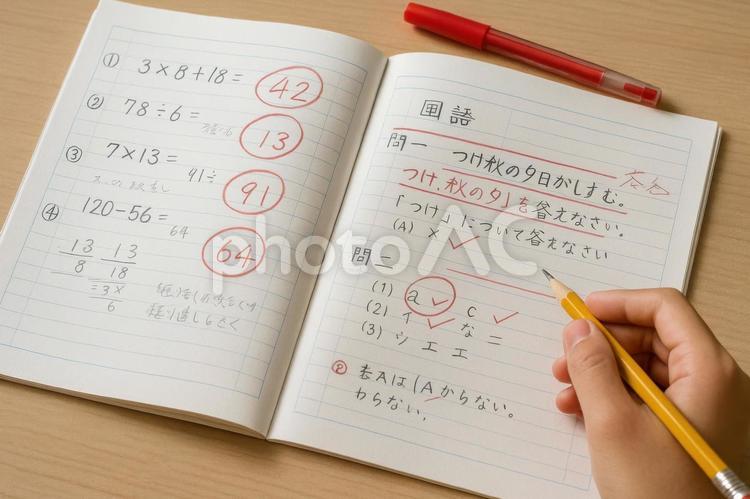 ① 3×8+18= 42
② 78÷6= 13
③ 7×13= 91
91÷
④ 120-56= 64
64
13 13
8 18
=3×
6
国語
問一 つけ秋の夕日かしすむ。
つけ、秋の夕」を答えなさい。
「つけ」について答えなさい
(A) × ✓
問二
(1) a ✓ c ✓
(2) イ ✓ な =
(3) シ エ エ
② 去Aは(Aからない。
わらない.
photoAC